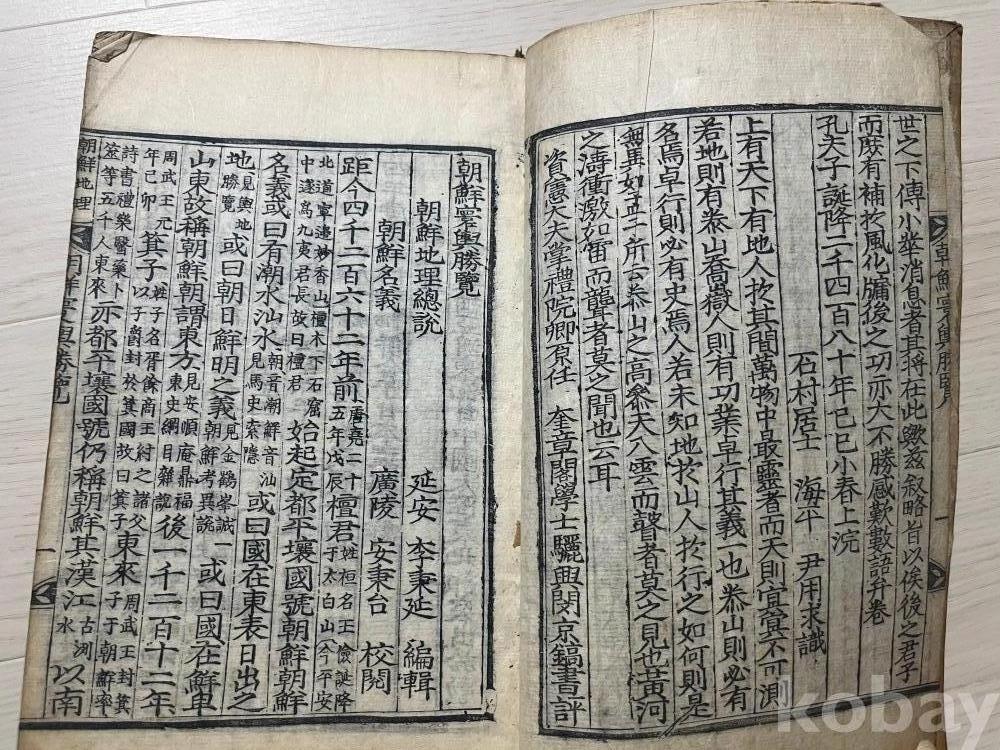 朝鮮寰輿勝覽 一
世之下傳小華消息者其將在此歟玆叙略旨以俟後之君子
而庶有補於風化牖後之功亦大不勝感歎數語弁卷
孔夫子誕降二千四百八十年己巳小春上浣
石村居士 海平 尹用求識
上有天下有地人於其間萬物中最靈者而天則窅冥不可測
若地則有泰山喬嶽人則有功業卓行其義一也泰山則必有
名焉卓行則必有史焉人若未知地於山人於行之如何則是
無異如孟子所云泰山之高參天入雲而瞽者莫之見也黃河
之濤衝激如雷而聾者莫之聞也云耳
資憲大夫掌禮院卿原任 奎章閣學士驪興閔京鎬書評
朝鮮寰輿勝覽
朝鮮地理總說 延安 李秉延 編輯
朝鮮名義 廣陵 安秉台 校閱
距今四千二百六十二年前 唐堯二十五年戊辰 檀君 姓桓名王儉誕降于太白山今平安
北道寧邊妙香山檀木下石窟中遂爲九夷君長故曰檀君 始起定都平壤國號朝鮮朝鮮
名義或曰有潮水汕水 朝音潮鮮音汕見馬史索隱 或曰國在東表日出之
地 見輿地勝覽 或曰朝日鮮明之義 見金鶴峯誠一朝鮮考異說 或曰國在鮮卑
山東故稱朝鮮朝謂東方 見安順庵鼎福東史綱目雜說 後一千二百十二年
周武王元年己卯 箕子 姓子名胥餘商王紂之諸父以子爵封於箕國故曰箕子 東來 周武王封箕子于朝鮮率
詩書禮樂醫藥卜筮等五千人東來 亦都平壤國號仍稱朝鮮其漢江 古洌水 以南
朝鮮地理 朝鮮寰輿勝覽 一
kobay